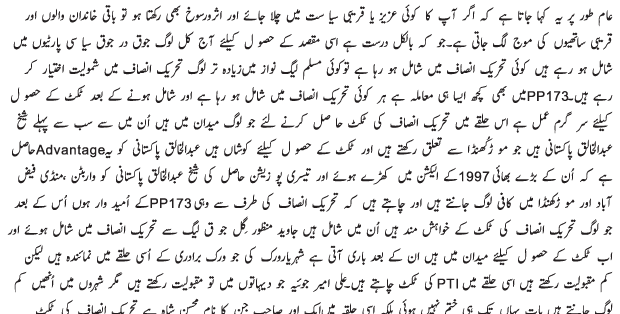 عام طور پر یہ کہا جاتا ہے کہ اگر آپ کا کوئی عزیز یا قریبی سیا ست میں چلا جائے اور اثرورسوخ بھی رکھتا ہو تو باقی خاندان والوں اور
قریبی ساتھیوں کی موج لگ جاتی ہے۔جو کہ بالکل درست ہے اسی مقصد کے حصو ل کیلئے آج کل لوگ جوق در جوق سیا سی پارٹیوں میں
شامل ہو رہے ہیں کوئی تحریک انصاف میں شامل ہو رہا ہے توکوئی مسلم لیگ نواز میں زیادہ تر لوگ تحریک انصاف میں شمولیت اختیار کر
رہے ہیں۔PP173میں بھی کچھ ایسا ہی معاملہ ہے ہر کوئی تحریک انصاف میں شامل ہو رہا ہے اور شامل ہونے کے بعد ٹکٹ کے حصو ل
کیلئے سر گرم عمل ہے اس حلقے میں تحریک انصاف کی ٹکٹ حا صل کرنے لئے جو لوگ میدان میں ہیں اُن میں سے سب سے پہلے شیخ
عبدالخالق پاکستانی ہیں جو مو ڑکھنڈا سے تعلق رکھتے ہیں اور ٹکٹ کے حصو ل کیلئے کوشاں ہیں عبدالخالق پاکستانی کو یہAdvantageحاصل
ہے کہ اُن کے بڑے بھائی1997کے الیکشن میں کھڑے ہوئے اور تیسری پو زیشن حاصل کی شیخ عبدالخالق پاکستانی کو واربٹن ،منڈی فیض
آباد اور مو ڑکھنڈا میں کافی لوگ جانتے ہیں اور چاہتے ہیں کہ تحریک انصاف کی طرف سے وہیPP173کے اُمید وار ہوں اُس کے بعد
جو لوگ تحریک انصاف کی ٹکٹ کے خواہش مند ہیں اُن میں شامل ہیں جاوید منظور گِل جو ق لیگ سے تحریک انصاف میں شامل ہوئے اور
اب ٹکٹ کے حصو ل کیلئے میدان میں ہیں ان کے بعد باری آتی ہے شہریارورک کی جو ورک برادری کے اُسی حلقے میں نمائندہ ہیں لیکن
کم مقبولیت رکھتے ہیں اسی حلقے میں PTI کی ٹکٹ چاہتے ہیں۔علی امیر جوئیہ جو دیہاتوں میں تو مقبولیت رکھتے ہیں مگر شہروں میں اُنھیں کم
لوگ جانتے ہیں بات یہاں تک ہی ختم نہیں ہوئی بلکہ اسی حلقہ میں ایک اور صاحب جن کا نام محسن شاہ ہے تحریک انصاف کی ٹکٹ